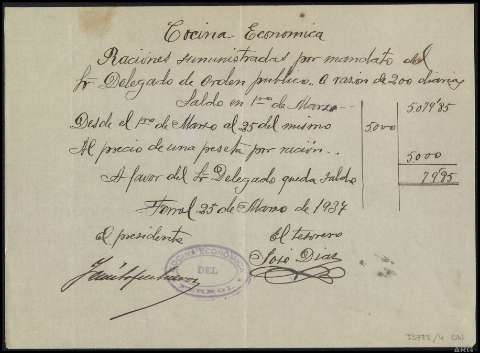 Cocina Economica
Raciones suministradas por mandato del
Sr Delegado de Orden publico. A razon de 200 diarias
Saldo en 1ro de Marzo -- 5079'85
Desde el 1ro de Marzo al 25 del mismo 5000
Al precio de una peseta por ración .. 5000
A favor del Sr Delegado queda saldo 79'85
Ferrol 25 de Marzo de 1937
El presidente El tesorero
José Diaz
COCINA ECONÓMICA
DEL
FERROL